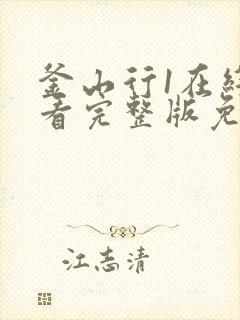 釜山行1在
看完整版免
江志清